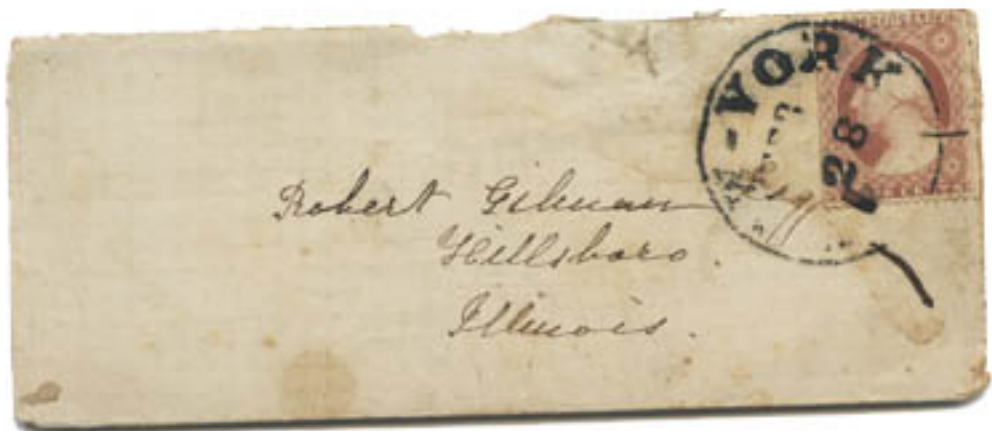 YORK
28
Robert Gilman Esqr
Hillsboro.
Illinois.